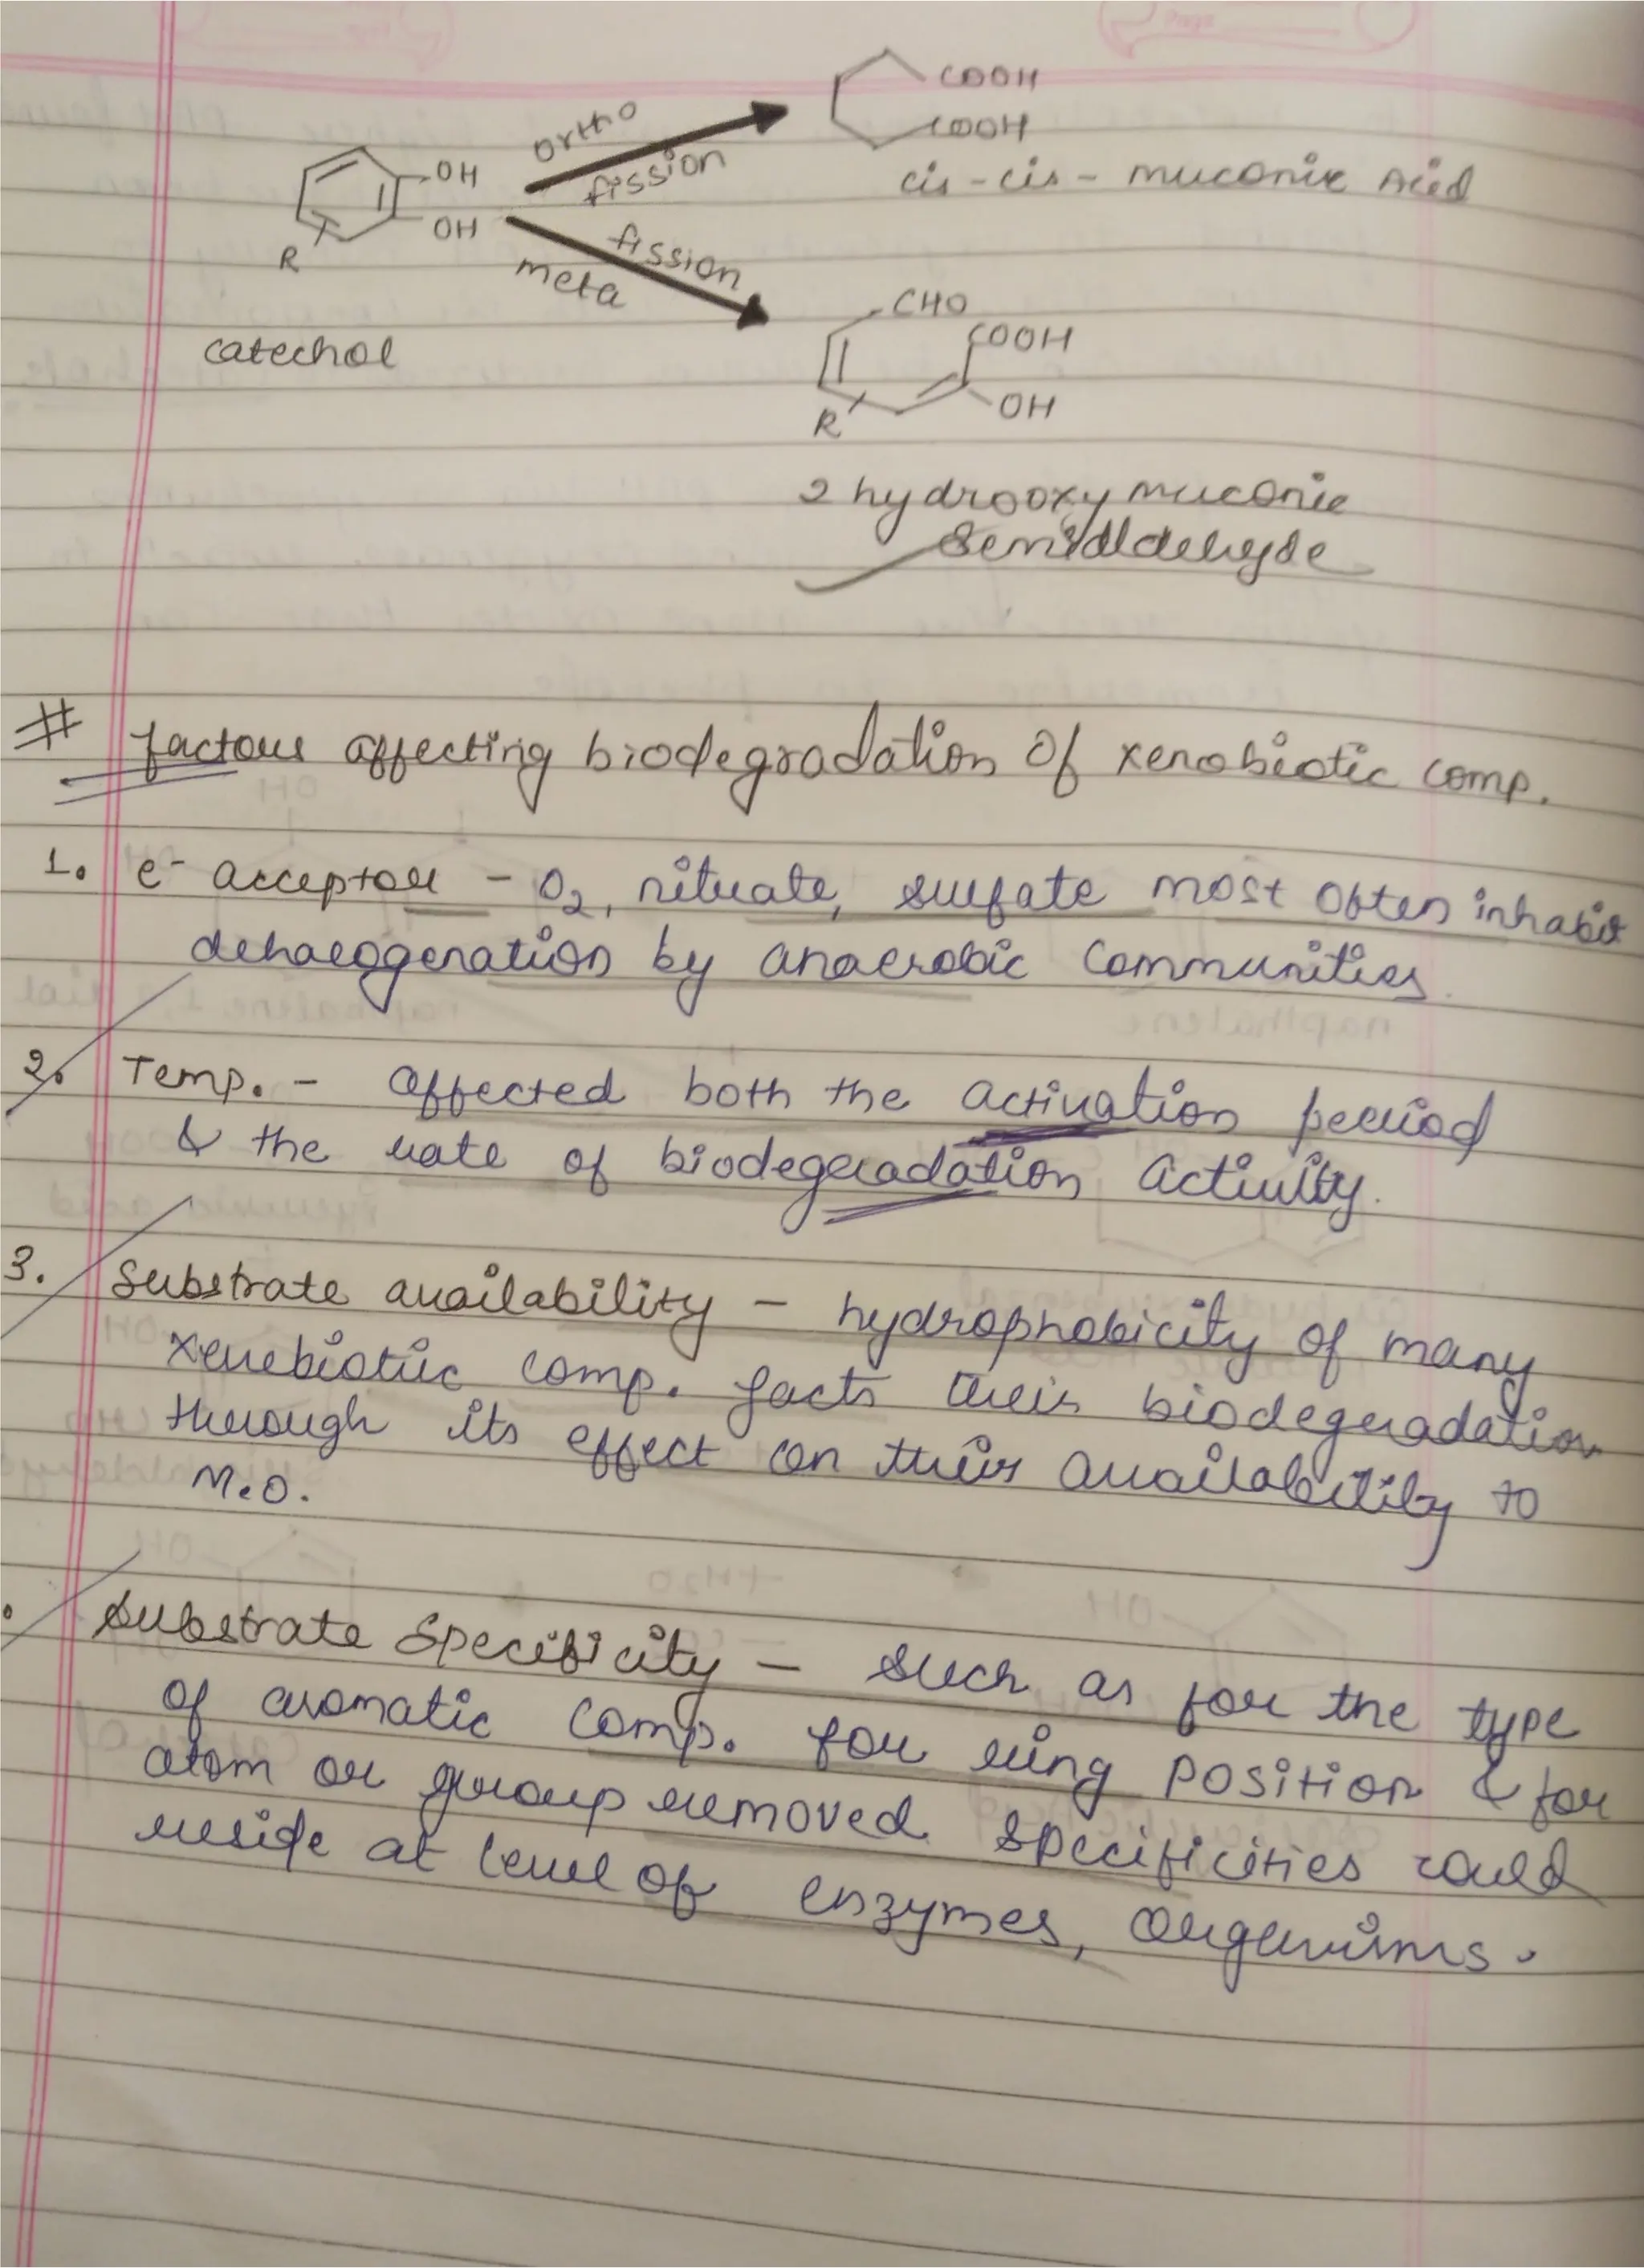 COOH
COOH
ortho
fission
cis-cis- muconic Acid
OH
OH
R
fission
meta
catechol
CHO
COOH
R
OH
2 hydrooxy muconic
semialdehyde
# factors affecting biodegradation of xenobiotic comp.
1. e- acceptor - O2, nitrate, sulfate most often inhabit
dehalogenation by anaerobic communities
2. Temp. - affected both the activation period
& the rate of biodegradation activity.
3. Substrate availability - hydrophobicity of many
xenebiotic comp. facts their biodegradation
through its effect on their availability to
M.O.
. Substrate Specificity - such as for the type
of aromatic comp. for ring position & for
atom or group removed. specificities could
reside at level of enzymes, organisms.